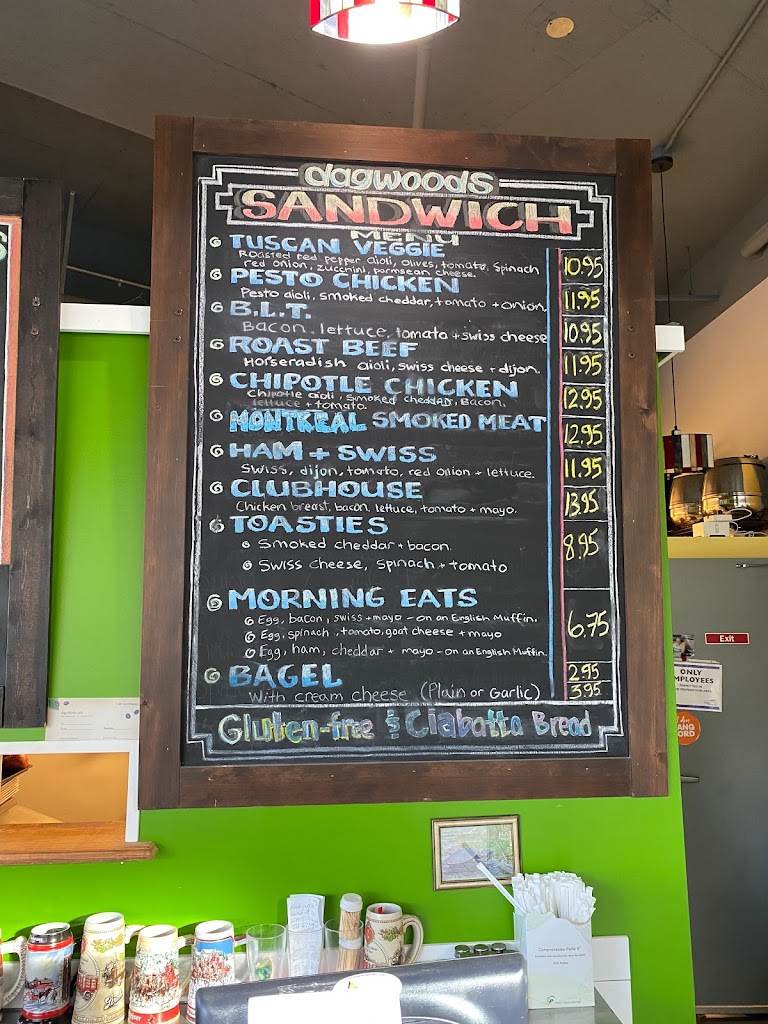 dagwoods
SANDWICH
MENU
TUSCAN VEGGIE 10.95
Roasted red pepper aioli, olives, tomato, spinach
red onion, zucchini, parmsean cheese.
PESTO CHICKEN 11.95
Pesto aioli, smoked cheddar, tomato + onion.
B.L.T. 10.95
Bacon, lettuce, tomato + swiss cheese
ROAST BEEF 11.95
Horseradish aioli, swiss cheese + dijon.
CHIPOTLE CHICKEN 12.95
Chipotle aioli, smoked cheddar, Bacon,
lettuce + tomato.
MONTREAL SMOKED MEAT 12.95
HAM + SWISS 11.95
Swiss, dijon, tomato, red onion + lettuce.
CLUBHOUSE 13.95
Chicken breast, bacon, lettuce, tomato + mayo.
TOASTIES 8.95
Smoked cheddar + bacon.
Swiss cheese, spinach + tomato
MORNING EATS 6.75
Egg, bacon, swiss + mayo - on an English Muffin.
Egg, spinach, tomato, goat cheese + mayo
Egg, ham, cheddar + mayo - on an English Muffin
BAGEL 2.95
With cream cheese (Plain or Garlic) 3.95
Gluten-free & Ciabatta Bread
Exit
ONLY
MPLOYEES